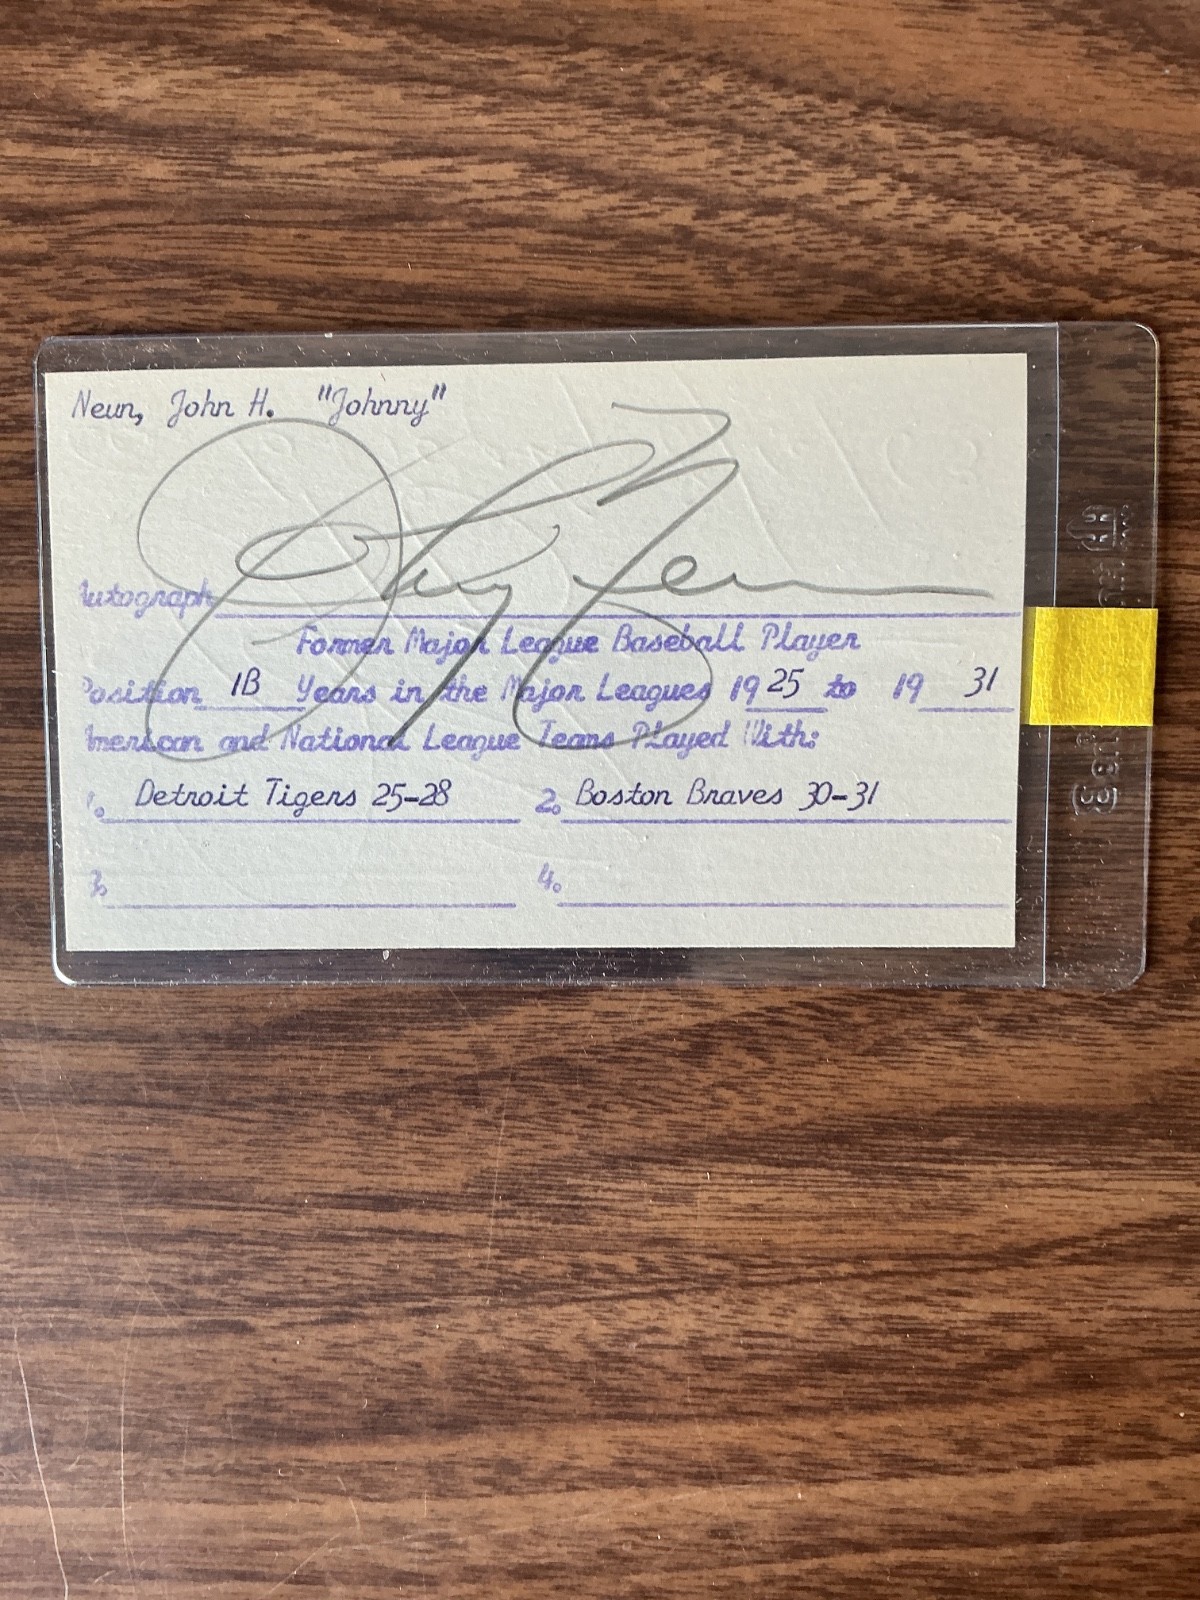 Neun, John H. "Johnny"
Johnny Neun
Autograph
Former Major League Baseball Player
Position 1B Years in the Major Leagues 19 25 to 19 31
American and National League Teams Played With:
1. Detroit Tigers 25-28 2. Boston Braves 30-31
3. 4.